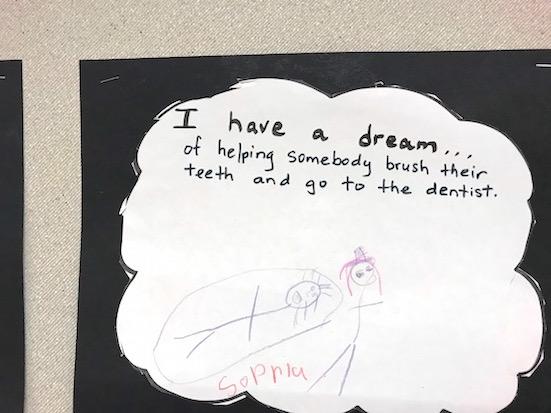 I have a dream...
of helping somebody brush their
teeth and go to the dentist.
Sophia